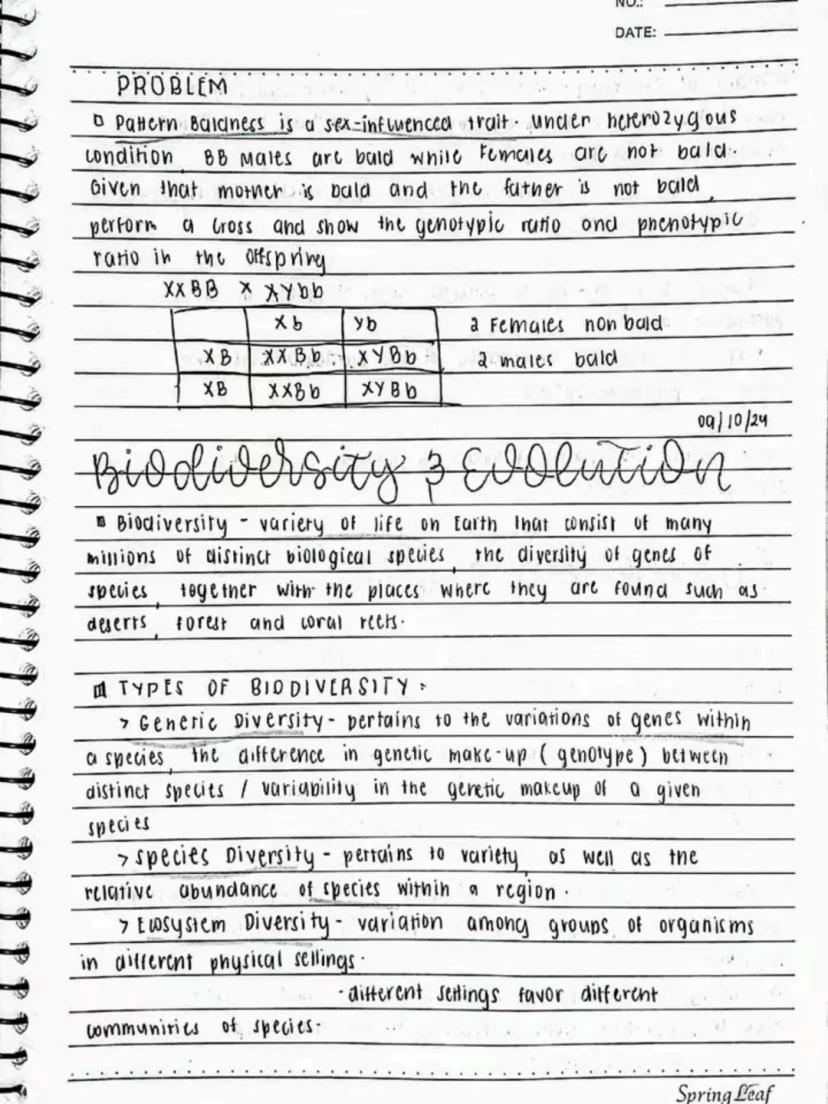 NO.:
DATE:
PROBLEM
Pattern Baldness is a sex-influenced trait. under heterozygous
condition, BB Males are bald while Females are not bald.
Given that mother is bald and the father is not bald,
perform a cross and show the genotypic ratio and phenotypic
ratio in the offspring
XXBB x XYbb
Xb Yb 2 Females non bald
XB XXBb XYBb 2 males bald
XB XXBb XYBb
09/10/24
Biodiversity & Evolution
Biodiversity - variety of life on Earth that consist of many
millions of distinct biological species, the diversity of genes of
species, together with the places where they are found such as
deserts, forest and coral reefs.
TYPES OF BIODIVERSITY:
> Genetic Diversity - pertains to the variations of genes within
a species, the difference in genetic make-up (genotype) between
distinct species / variability in the genetic makeup of a given
species
> Species Diversity - pertains to variety, as well as the
relative abundance of species within a region.
> Ecosystem Diversity - variation among groups of organisms
in different physical settings.
- different settings favor different
communities of species.
Spring Leaf